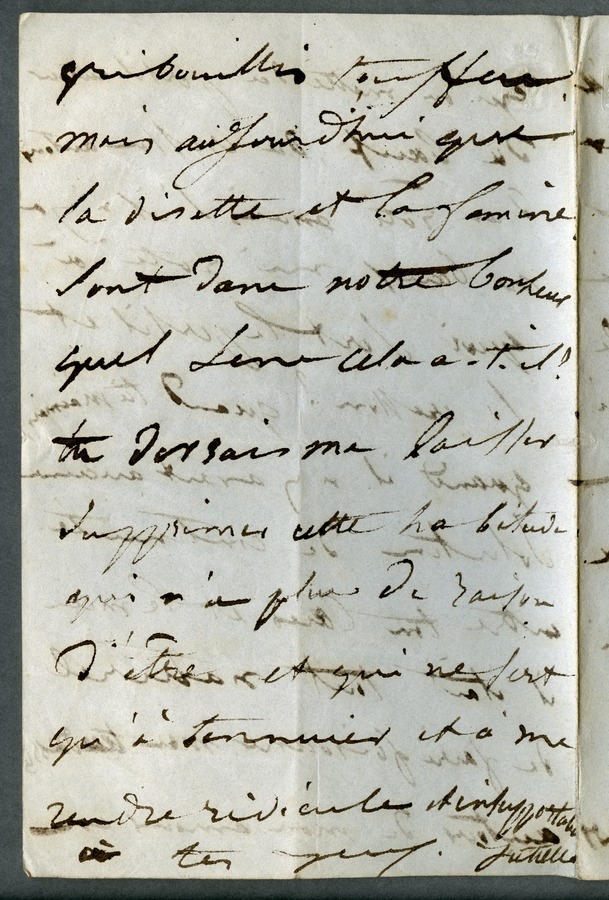 gribouillis touffus
mais aujourd'hui que
la disette et la famine
sont dans notre bonheur
quel sens cela a-t-il?
tu devrais me laisser
supprimer cette habitude
qui n'a plus de raison
d'être et qui ne sert
qu'à t'ennuier et à me
rendre ridicule et insupportable
à tes yeux.